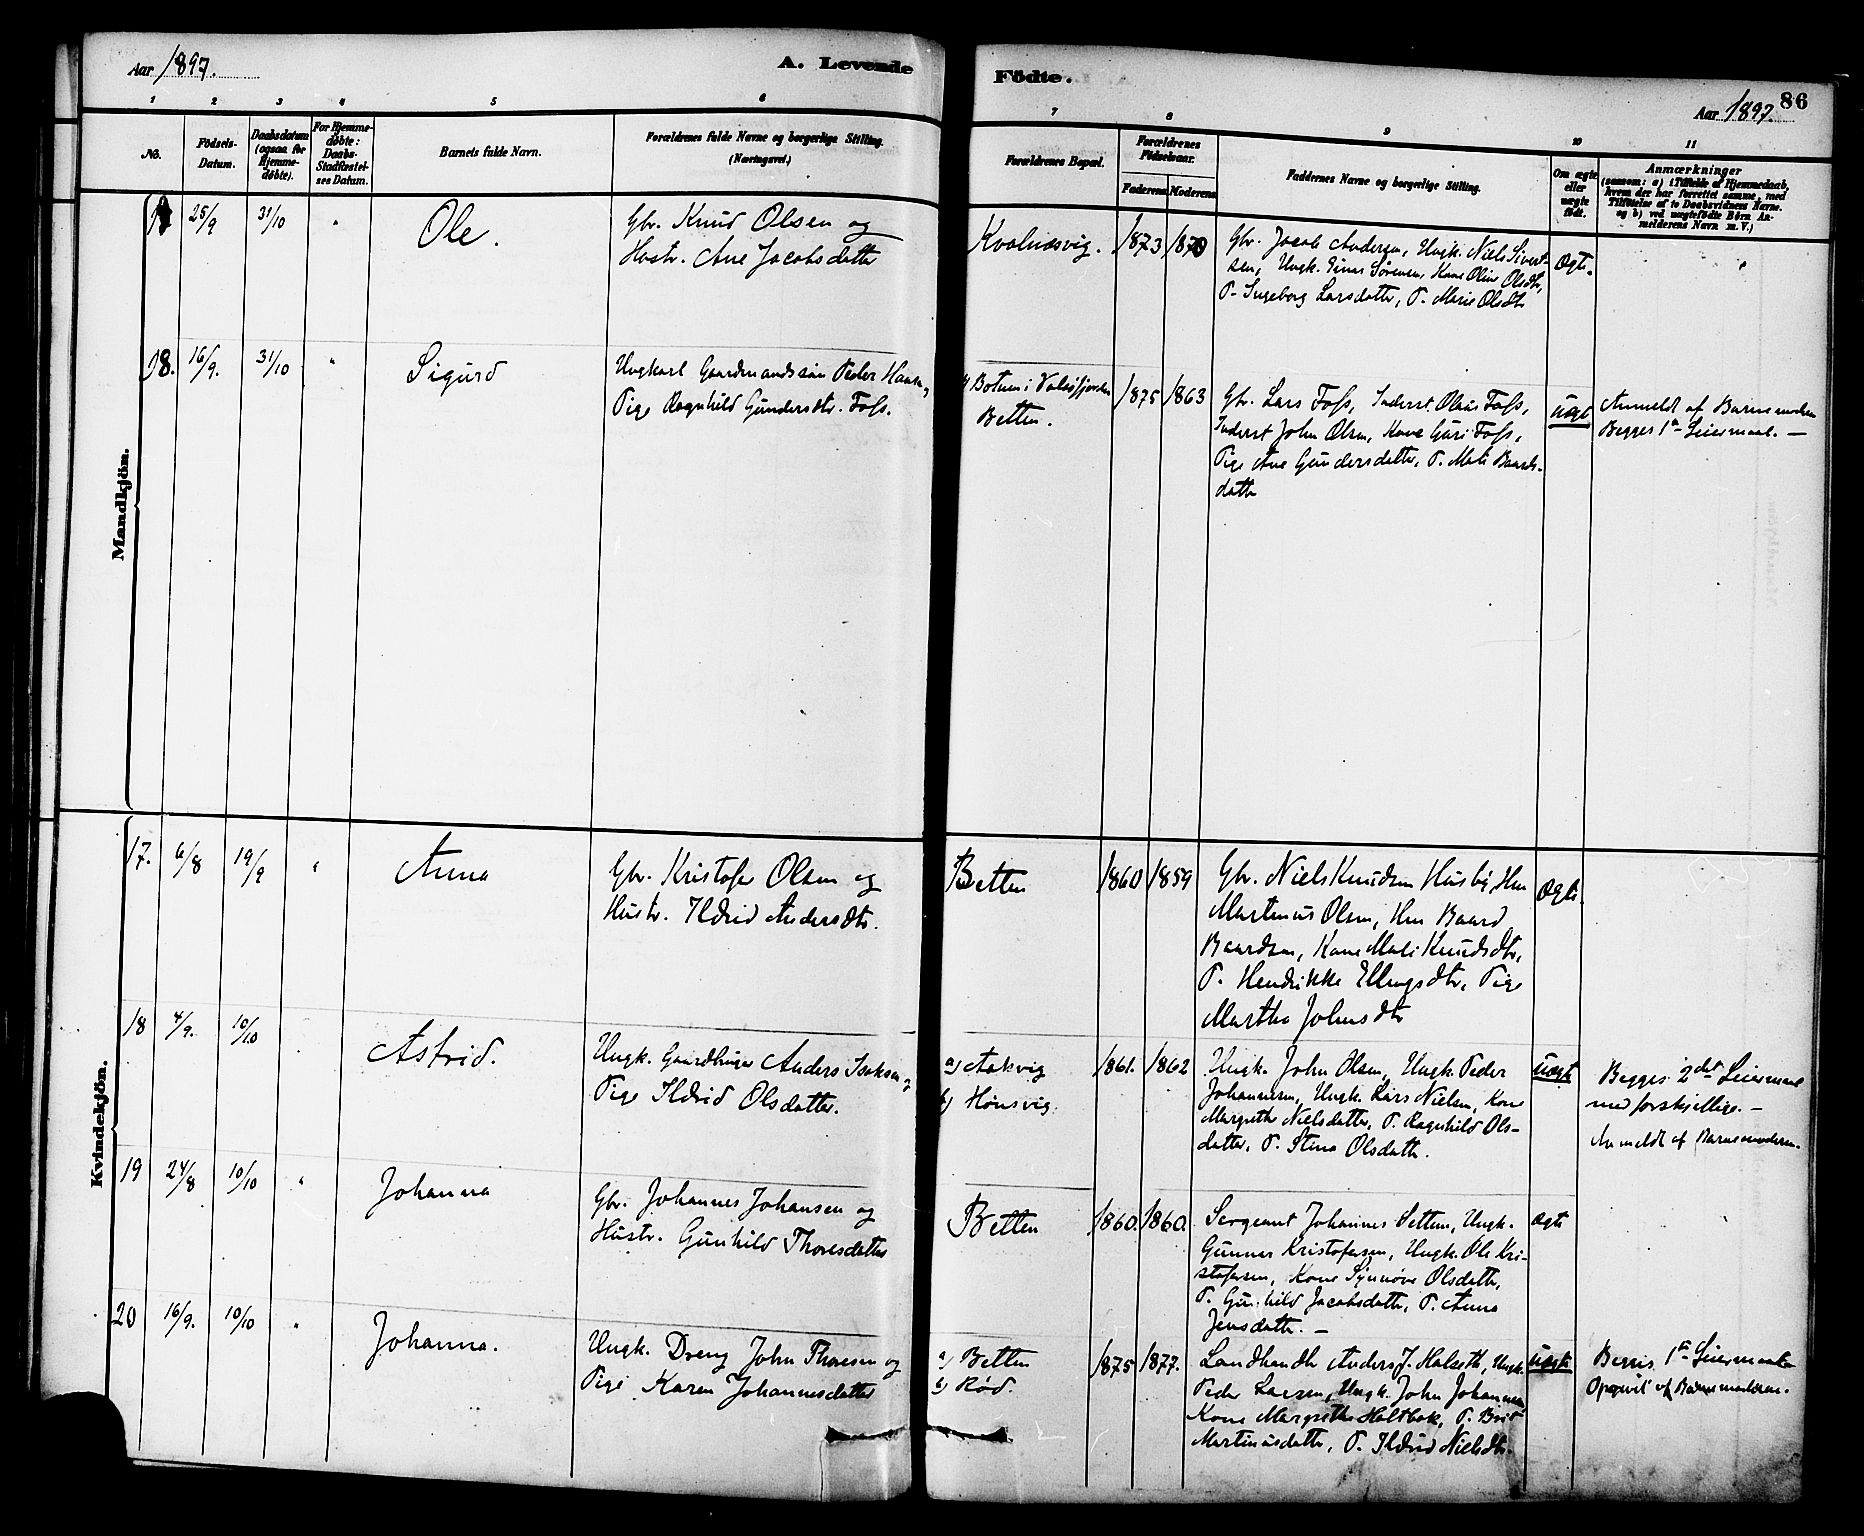 Aar 1897.
A. Levende
Födte.
86
Aar 1897.
1 2 3 4 5 6 7 8 9 10 11
No.
Födsels-
Datum.
Daabsdatum
(ogsaa for
Hjemme-
døbte).
For Hjemme-
døbte:
Daabs-
Stadfæstel-
ses Datum.
Barnets fulde Navn.
Forældrenes fulde Navne og borgerlige Stilling.
(Næringsvei.)
Forældrenes Bopæl.
Forældrenes
Fødselsaar.
Faderens
Moderens
Faddernes Navne og borgerlige Stilling.
Om ægte
eller
uægte
født.
Anmærkninger
(saasom: a) i Tilfælde af Hjemmedaab,
hvem der har forrettet samme, med
Tilføielse af to Daabsvidners Navne.
og b) ved uægtefødte Börn An-
melderens Navn m. V.)
Mandkjön.
25/9 31/10 "
Ole.
Gbr. Knud Olsen og
Hustr. Ane Jacobsdatter
Kvalnæsvig.
1873 1870
Gbr. Jacob Andersen, Ungk. Niels Sivert-
sen, Ungk. Einar Sørensen, Kone Oline Olsdtr,
P. Ingeborg Larsdatter, P. Marie Olsdtr
Ægte.
18. 16/9. 31/10 "
Sigurd
Ungkarl Gaardmandssøn Peder
Pige Ragnhild Gundersdtr. Foss.
Botten i Valsøfjorden
Betten.
1875 1863
Gbr. Lars Foss, Inderst Olaus Foss,
Inderst John Olsen, Kone Guri Foss,
Pige Ane Gundersdatter, P. Mali Baards-
datter
Uægt
Anmeldt af Barnemoderen
Begges 1ste Leiermaal. —
Kvindekjön.
17. 6/8 19/9 "
Anna
Gbr. Kristofer Olsen og
Hustr. Ildrid Andersdtr.
Betten
1860 1859
Gbr. Niels Knudsen Husby,
Martinus Olsen, Baard
Baardsen, Kone Mali Knudsdtr,
P. Hendrikke Ellingsdtr, Pige
Martha Johnsdtr
Ægte.
18 4/9. 10/10
Astrid.
Ungk. Gaardbruger Anders Isaksen og
Pige Ildrid Olsdatter.
a) Aakvig
b) Hønsvig
1861. 1862
Ungk. John Olsen, Ungk. Peder
Johannesen, Ungk. Lars Nielsen, Kone
Margrethe Nielsdatter, P. Ragnhild Ols-
datter, P. Stina Olsdatter.
uægt
Begges 2det Leiermaal
med forskjellige. —
Anmeldt af Barnemoderen.
19 24/8 10/10 "
Johanna
Gbr. Johannes Johansen og
Hustr. Gunhild Thoresdatter
Betten
1860. 1860.
Sergeant Johannes Settem, Ungk.
Gunnar Kristofersen, Ungk. Ole Kri-
stofersen, Kone Synnøve Olsdatter,
P. Gunhild Jacobsdatter, P. Anna
Jensdatter. —
ægte
20 16/9. 10/10 "
Johanna.
Ungk. Dreng John Thoresen og
Pige Karen Johannesdatter
a) Betten
b) Rød.
1875 1877.
Landhandler Anders J. Halseth, Ungk.
Peder Larsen, Ungk. John Johannesen,
Kone Margrethe Holtbak, P. Brit
Martinusdatter, P. Ildrid Nielsdtr.
uægte
Begges 1ste Leiermaal
Opgivet af Barnemoderen.